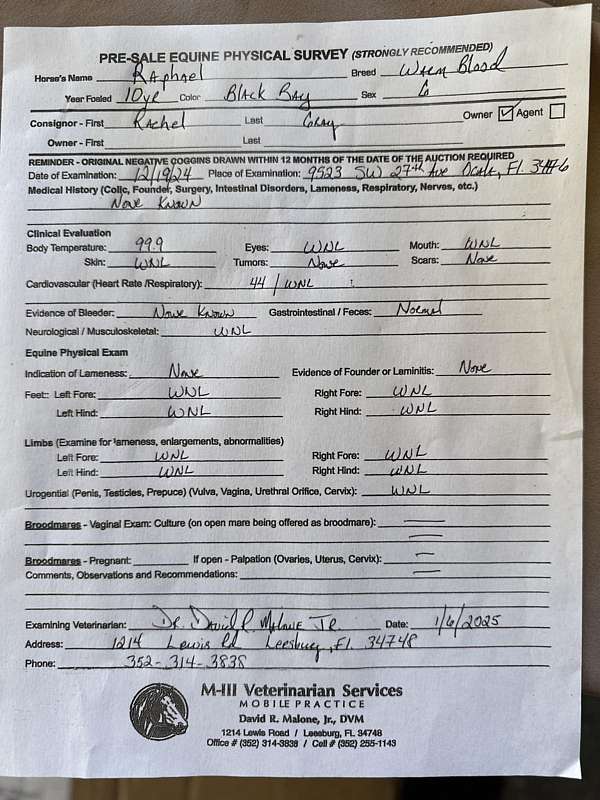 PRE-SALE EQUINE PHYSICAL SURVEY (STRONGLY RECOMMENDED)
Horse's Name Raphael Breed Warm Blood
Year Foaled 10yr Color Black Bay Sex G
Consignor - First Rachel Last Gray Owner ✓ Agent
Owner - First Last
REMINDER - ORIGINAL NEGATIVE COGGINS DRAWN WITHIN 12 MONTHS OF THE DATE OF THE AUCTION REQUIRED
Date of Examination: 12/19/24 Place of Examination: 9523 SW 27th Ave Ocala, Fl
Medical History (Colic, Founder, Surgery, Intestinal Disorders, Lameness, Respiratory, Nerves, etc.)
None Known
Clinical Evaluation
Body Temperature: 99.9 Eyes: WNL Mouth: WNL
Skin: WNL Tumors: None Scars: None
Cardiovascular (Heart Rate /Respiratory): 44 / WNL
Evidence of Bleeder: None Known Gastrointestinal / Feces: Normal
Neurological / Musculoskeletal: WNL
Equine Physical Exam
Indication of Lameness: None Evidence of Founder or Laminitis: None
Feet: Left Fore: WNL Right Fore: WNL
Left Hind: WNL Right Hind: WNL
Limbs (Examine for lameness, enlargements, abnormalities)
Left Fore: WNL Right Fore: WNL
Left Hind: WNL Right Hind: WNL
Urogential (Penis, Testicles, Prepuce) (Vulva, Vagina, Urethral Orifice, Cervix): WNL
Broodmares - Vaginal Exam: Culture (on open mare being offered as broodmare): —
—
Broodmares - Pregnant: If open - Palpation (Ovaries, Uterus, Cervix): —
Comments, Observations and Recommendations: —
Examining Veterinarian: Dr. David R Malone Jr Date: 1/6/2025
Address: 1214 Lewis Rd Leesburg, Fl 34748
Phone: 352-314-3838
M-III Veterinarian Services
MOBILE PRACTICE
David R. Malone, Jr., DVM
1214 Lewis Road / Leesburg, FL 34748
Office # (352) 314-3838 / Cell # (352) 255-1143